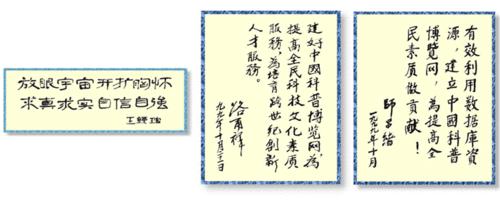 放眼宇宙开扩胸怀
求真求实自信自強
王绶琯
建好中國科普博览网，为
提高全民科技文化素质
服務，为培育跨世纪创新
人才服務。
路甬祥
九九年十月
有效利用数据庫資
源，建立中國科普
博覽网，为提高全
民素质做貢献！
師昌緒
一九九九年十月